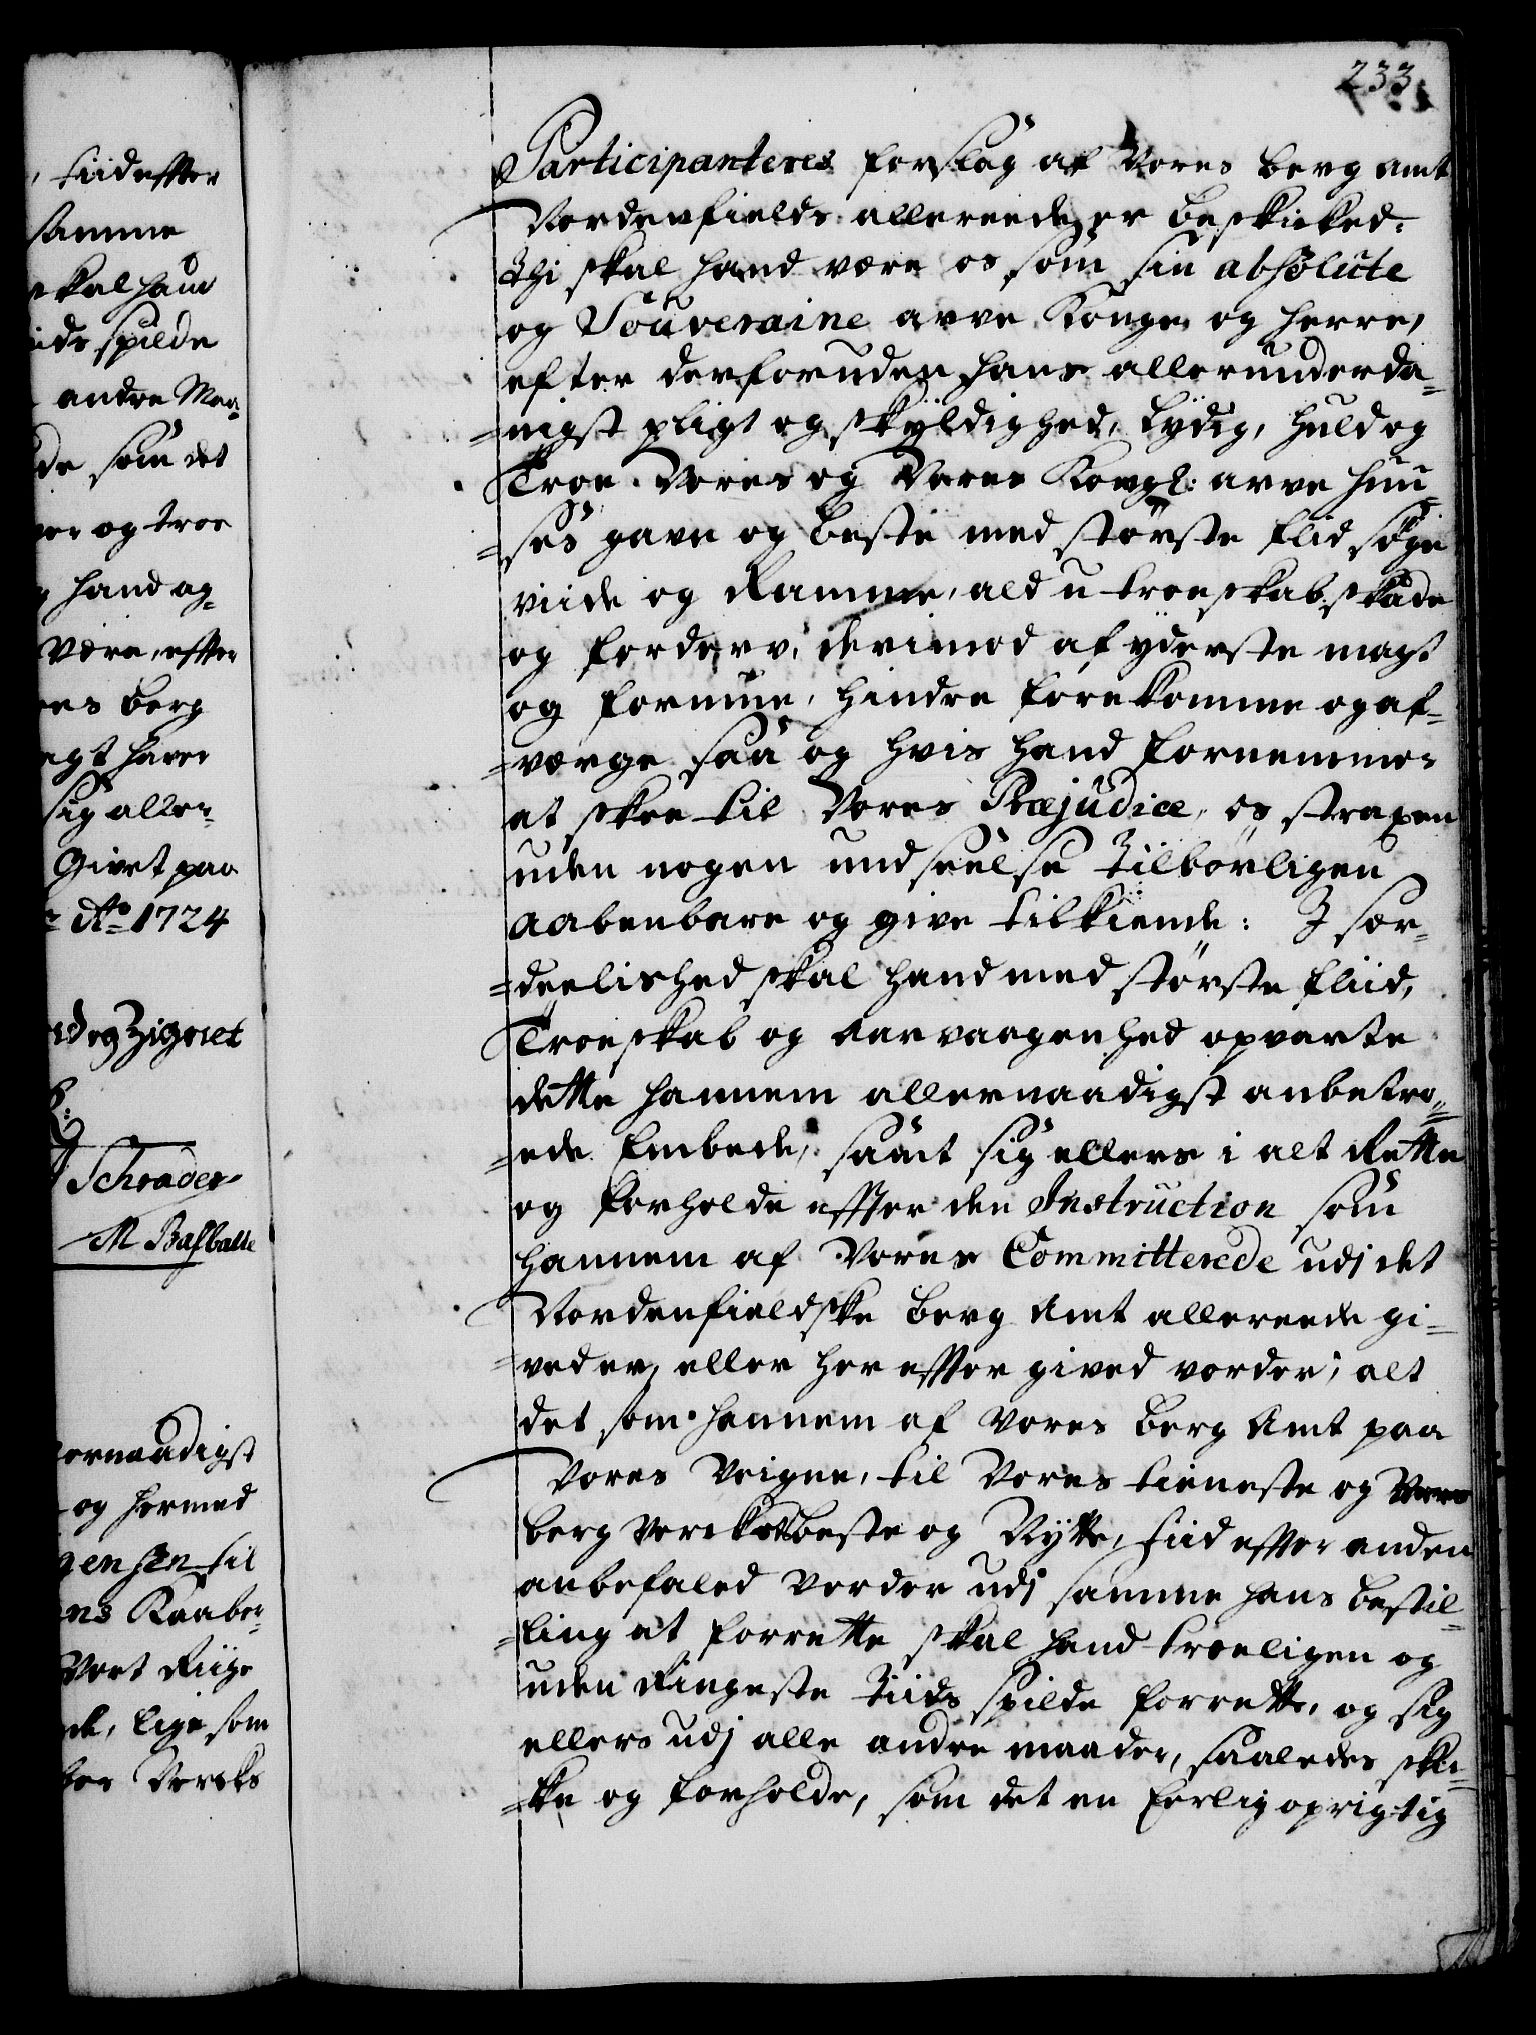 233
, tiid effter
samme
skal hand
iids spilde
andre Maa¬
de som det
og troe
hand og¬
være, effter
res berg
agt haver
sig aller¬
Givet paa
Aº 1724
og Zignet
Schrader
ernaadigst
og hermed
gensen til
Kaaber¬
Vort Riige
de, lige som
ber Vercks
Participanteres forslag af Vores berg amt
Nordenfields allereede er beskicked.
Thi skal hand være os som sin absolute
og Souveraine arve Konge og herre,
efter derforuden hans allerunderda¬
=nigst pligt og skyldighed, lydig, huld og
Troe. Vores og Vores Kongl: arve huu¬
=ses gavn og beste med største flid søge
viide og Ramme, ald u-troeskab skade
og forderv, derimod af yderste magt
og formue, hindre forekomme og af¬
=værge saa og hvis hand fornemmer
at skee til Vores Præjudice, os strapen
uden nogen undseelse tilbørligen
aabenbare og give tilkiende: I sær¬
=deelished skal hand med største fliid,
Troeskab og aarvaagenhed opvarte
dette hannem allernaadigst anbetro¬
=ede Embede, samt sig ellers i alt Rette
og forholde effter den Instruction som
hannem af Vores Committerede udj det
Nordenfieldske berg Amt allereede gi¬
=ved er, eller her effter gived vorder; alt
det som hannem af Vores berg Amt paa
Vores Veigne, til Vores tieneste og Vores
berg Verckes beste og Nytte, tiid effter anden
anbefaled vorder udj samme hans bestil¬
=ling at forrette skal hand troeligen og
uden Ringeste tiids spilde forrette, og sig
ellers udj alle andre maader, saaledes skic¬
=ke og forholde, som det en ærlig oprigtig